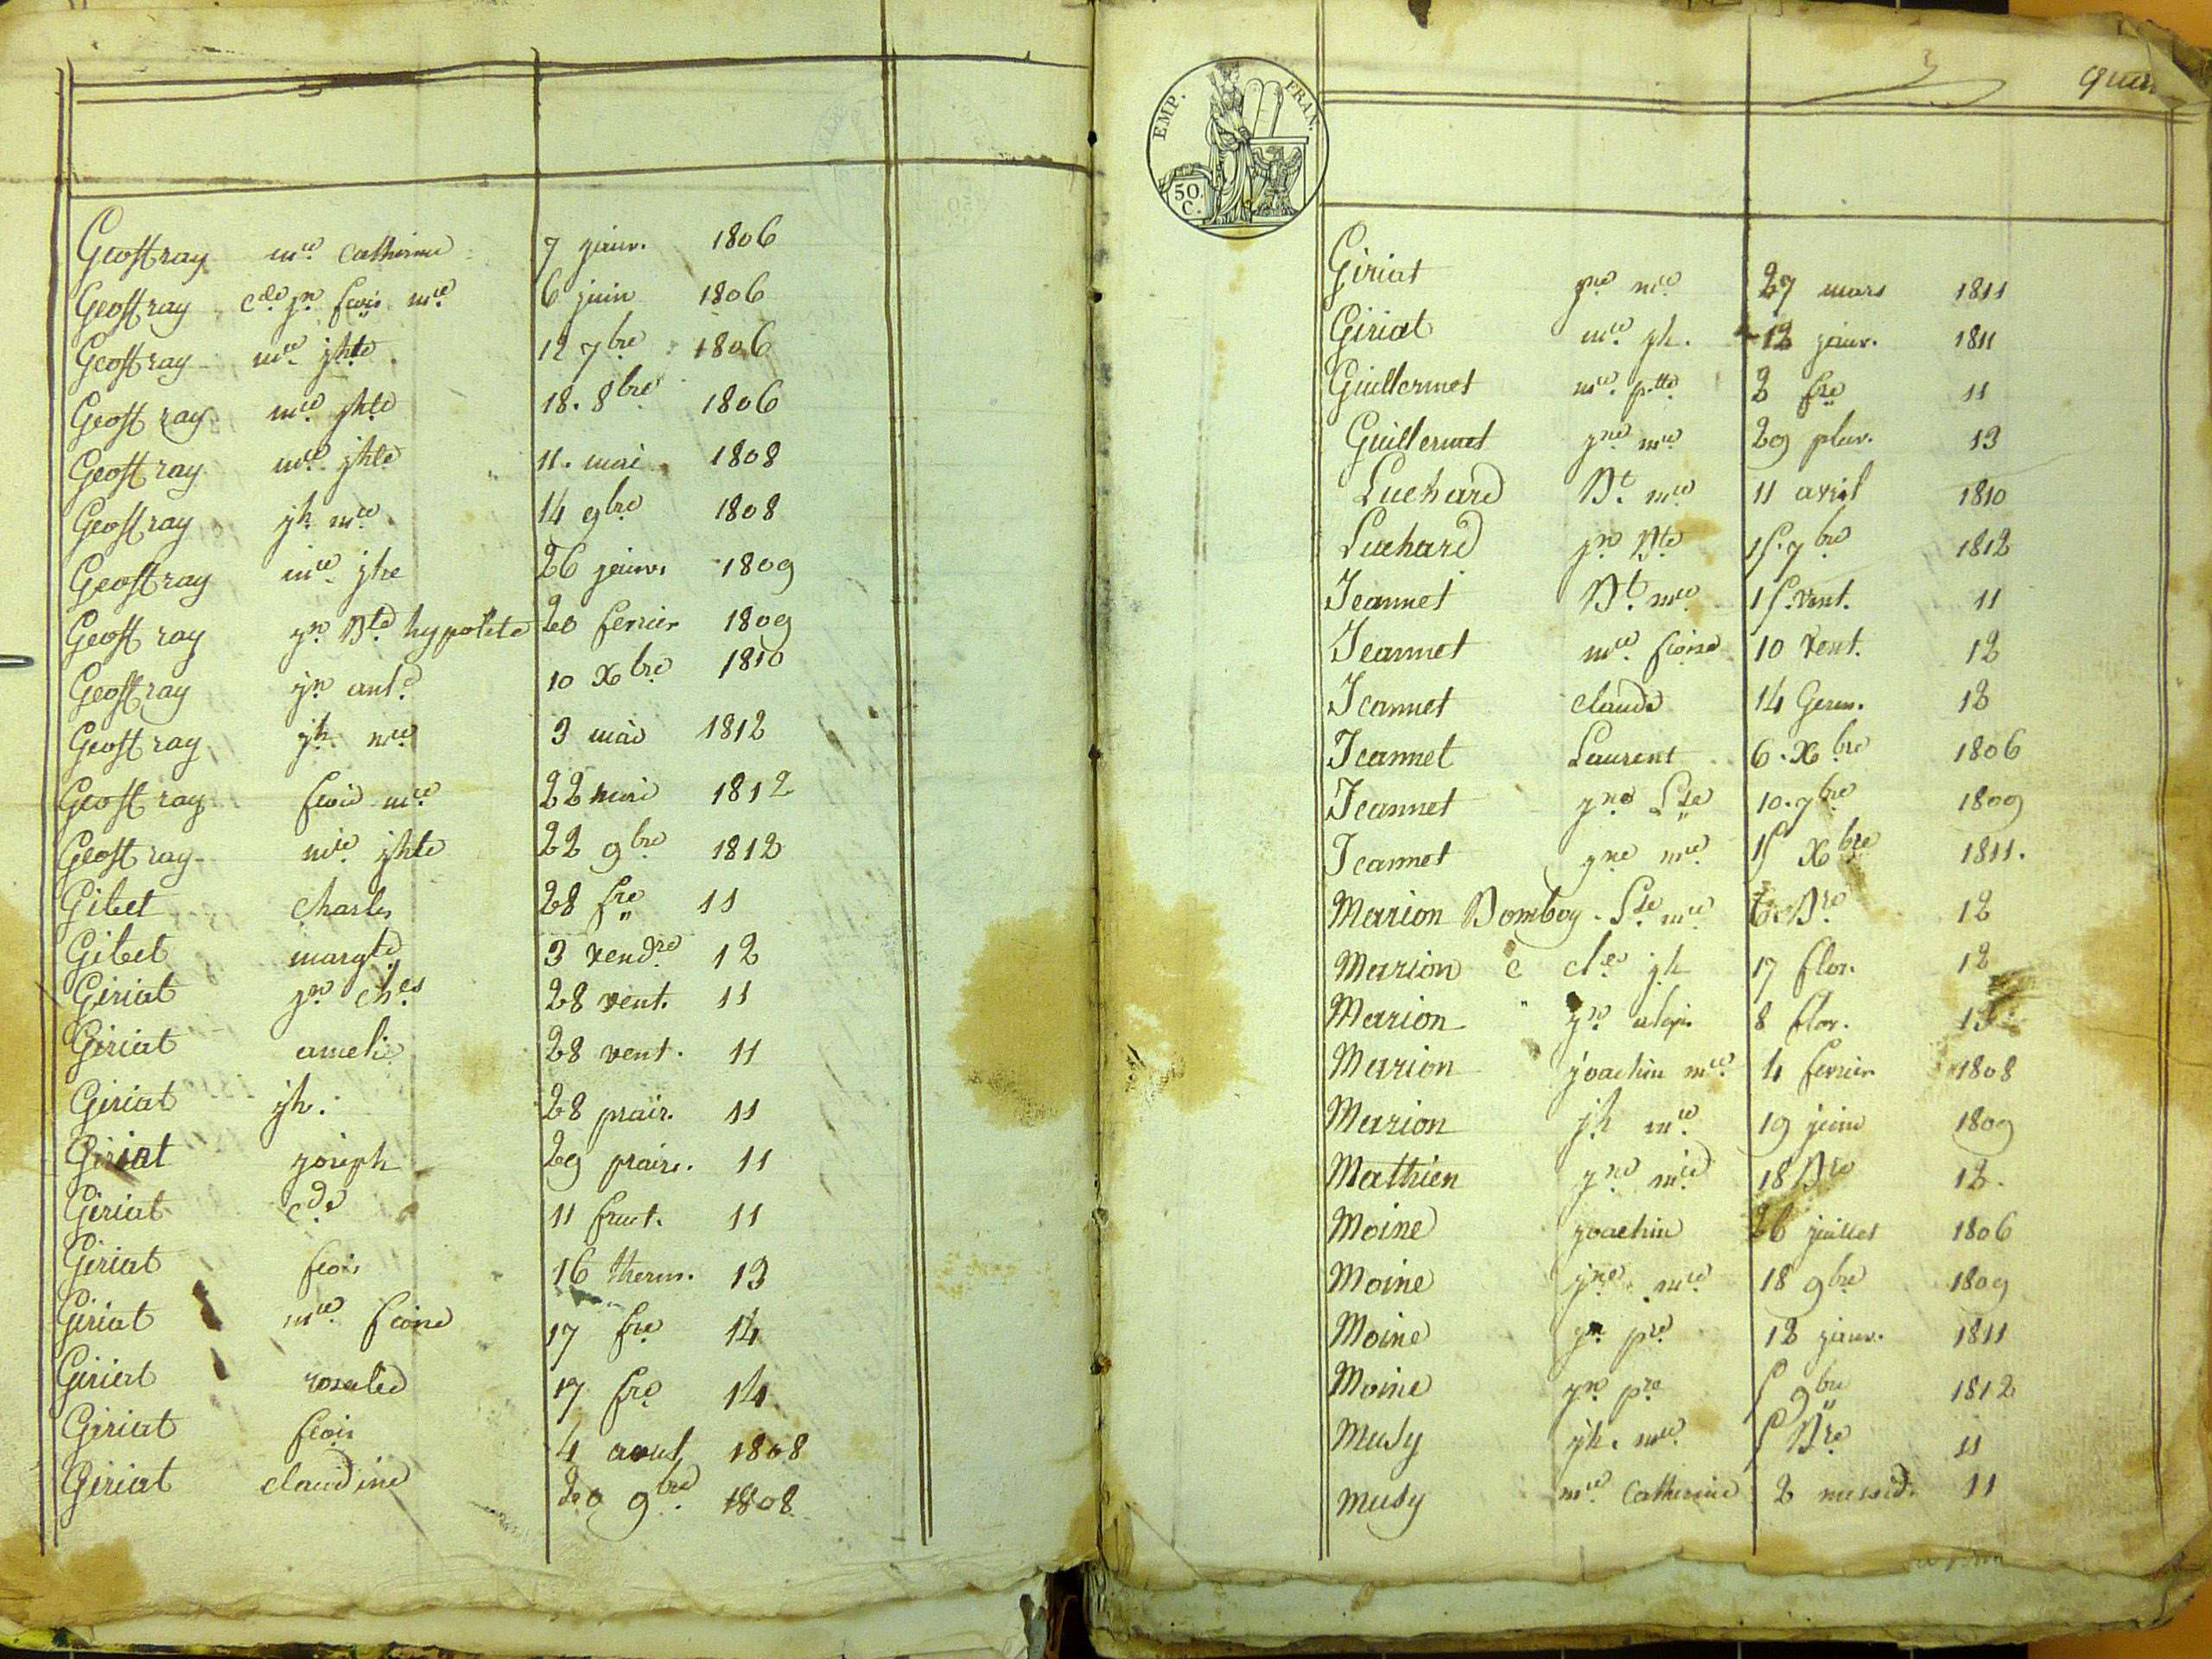 Geoffray mie Catherine 7 janv. 1806
Geoffray cde jn fcois mie 6 juin 1806
Geoffray mie jhte 12 7bre 1806
Geoffray mie jhte 18. 8bre 1806
Geoffray mie jhte 11. mai 1808
Geoffray jh mie 14 9bre 1808
Geoffray mie jhe 26 janv. 1809
Geoffray jn Bte hypolite 20 fevrier 1809
Geoffray jn ante 10 Xbre 1810
Geoffray jh mie 3 mai 1812
Geoffray fcois mie 22 mai 1812
Geoffray mie jhte 22 9bre 1812
Gibet Charles 28 fre 11
Gibet margte 3 vendre 12
Giriat jn Ches 28 vent. 11
Giriat amelie 28 vent. 11
Giriat jh. 28 prair. 11
Giriat joseph 29 prair. 11
Giriat cde 11 fruct. 11
Giriat fcois 16 therm. 13
Giriat mie fcoise 17 fre 14
Giriat rosalie 17 fre 14
Giriat fcois 4 aout 1808
Giriat claudine 20 9bre 1808
EMP. FRAN.
50. C.
3
Giriat jne mie 27 mars 1811
Giriat mie jh. 12 janv. 1811
Guillermet mie ptte 2 fre 11
Guillermet jne mie 29 pluv. 13
Luchard Bt mie 11 avril 1810
Luchard jn Bte 15. 7bre 1812
Jeannet Bt mie 15. vent. 11
Jeannet mie fcoise 10 vent. 12
Jeannet claude 14 Germ. 12
Jeannet Laurent 6. Xbre 1806
Jeannet jne Lse 10. 9bre 1809
Jeannet jne mie 15 Xbre 1811.
Marion Domboy mie Bre 12
Marion c cle jh 17 flor. 12
Marion " jn alexis 8 flor. 13
Marion joachim mie 4 fevrier 1808
Marion jh mie 19 juin 1809
Mathieu jne mie 18 Bre 12.
Moine joachim 26 juillet 1806
Moine jne mie 18 9bre 1809
Moine jn pre 12 janv. 1811
Moine jn pre 5 9bre 1812
Musy jh. mie 5 Bre 11
Musy mie Catherine 2 messid. 11